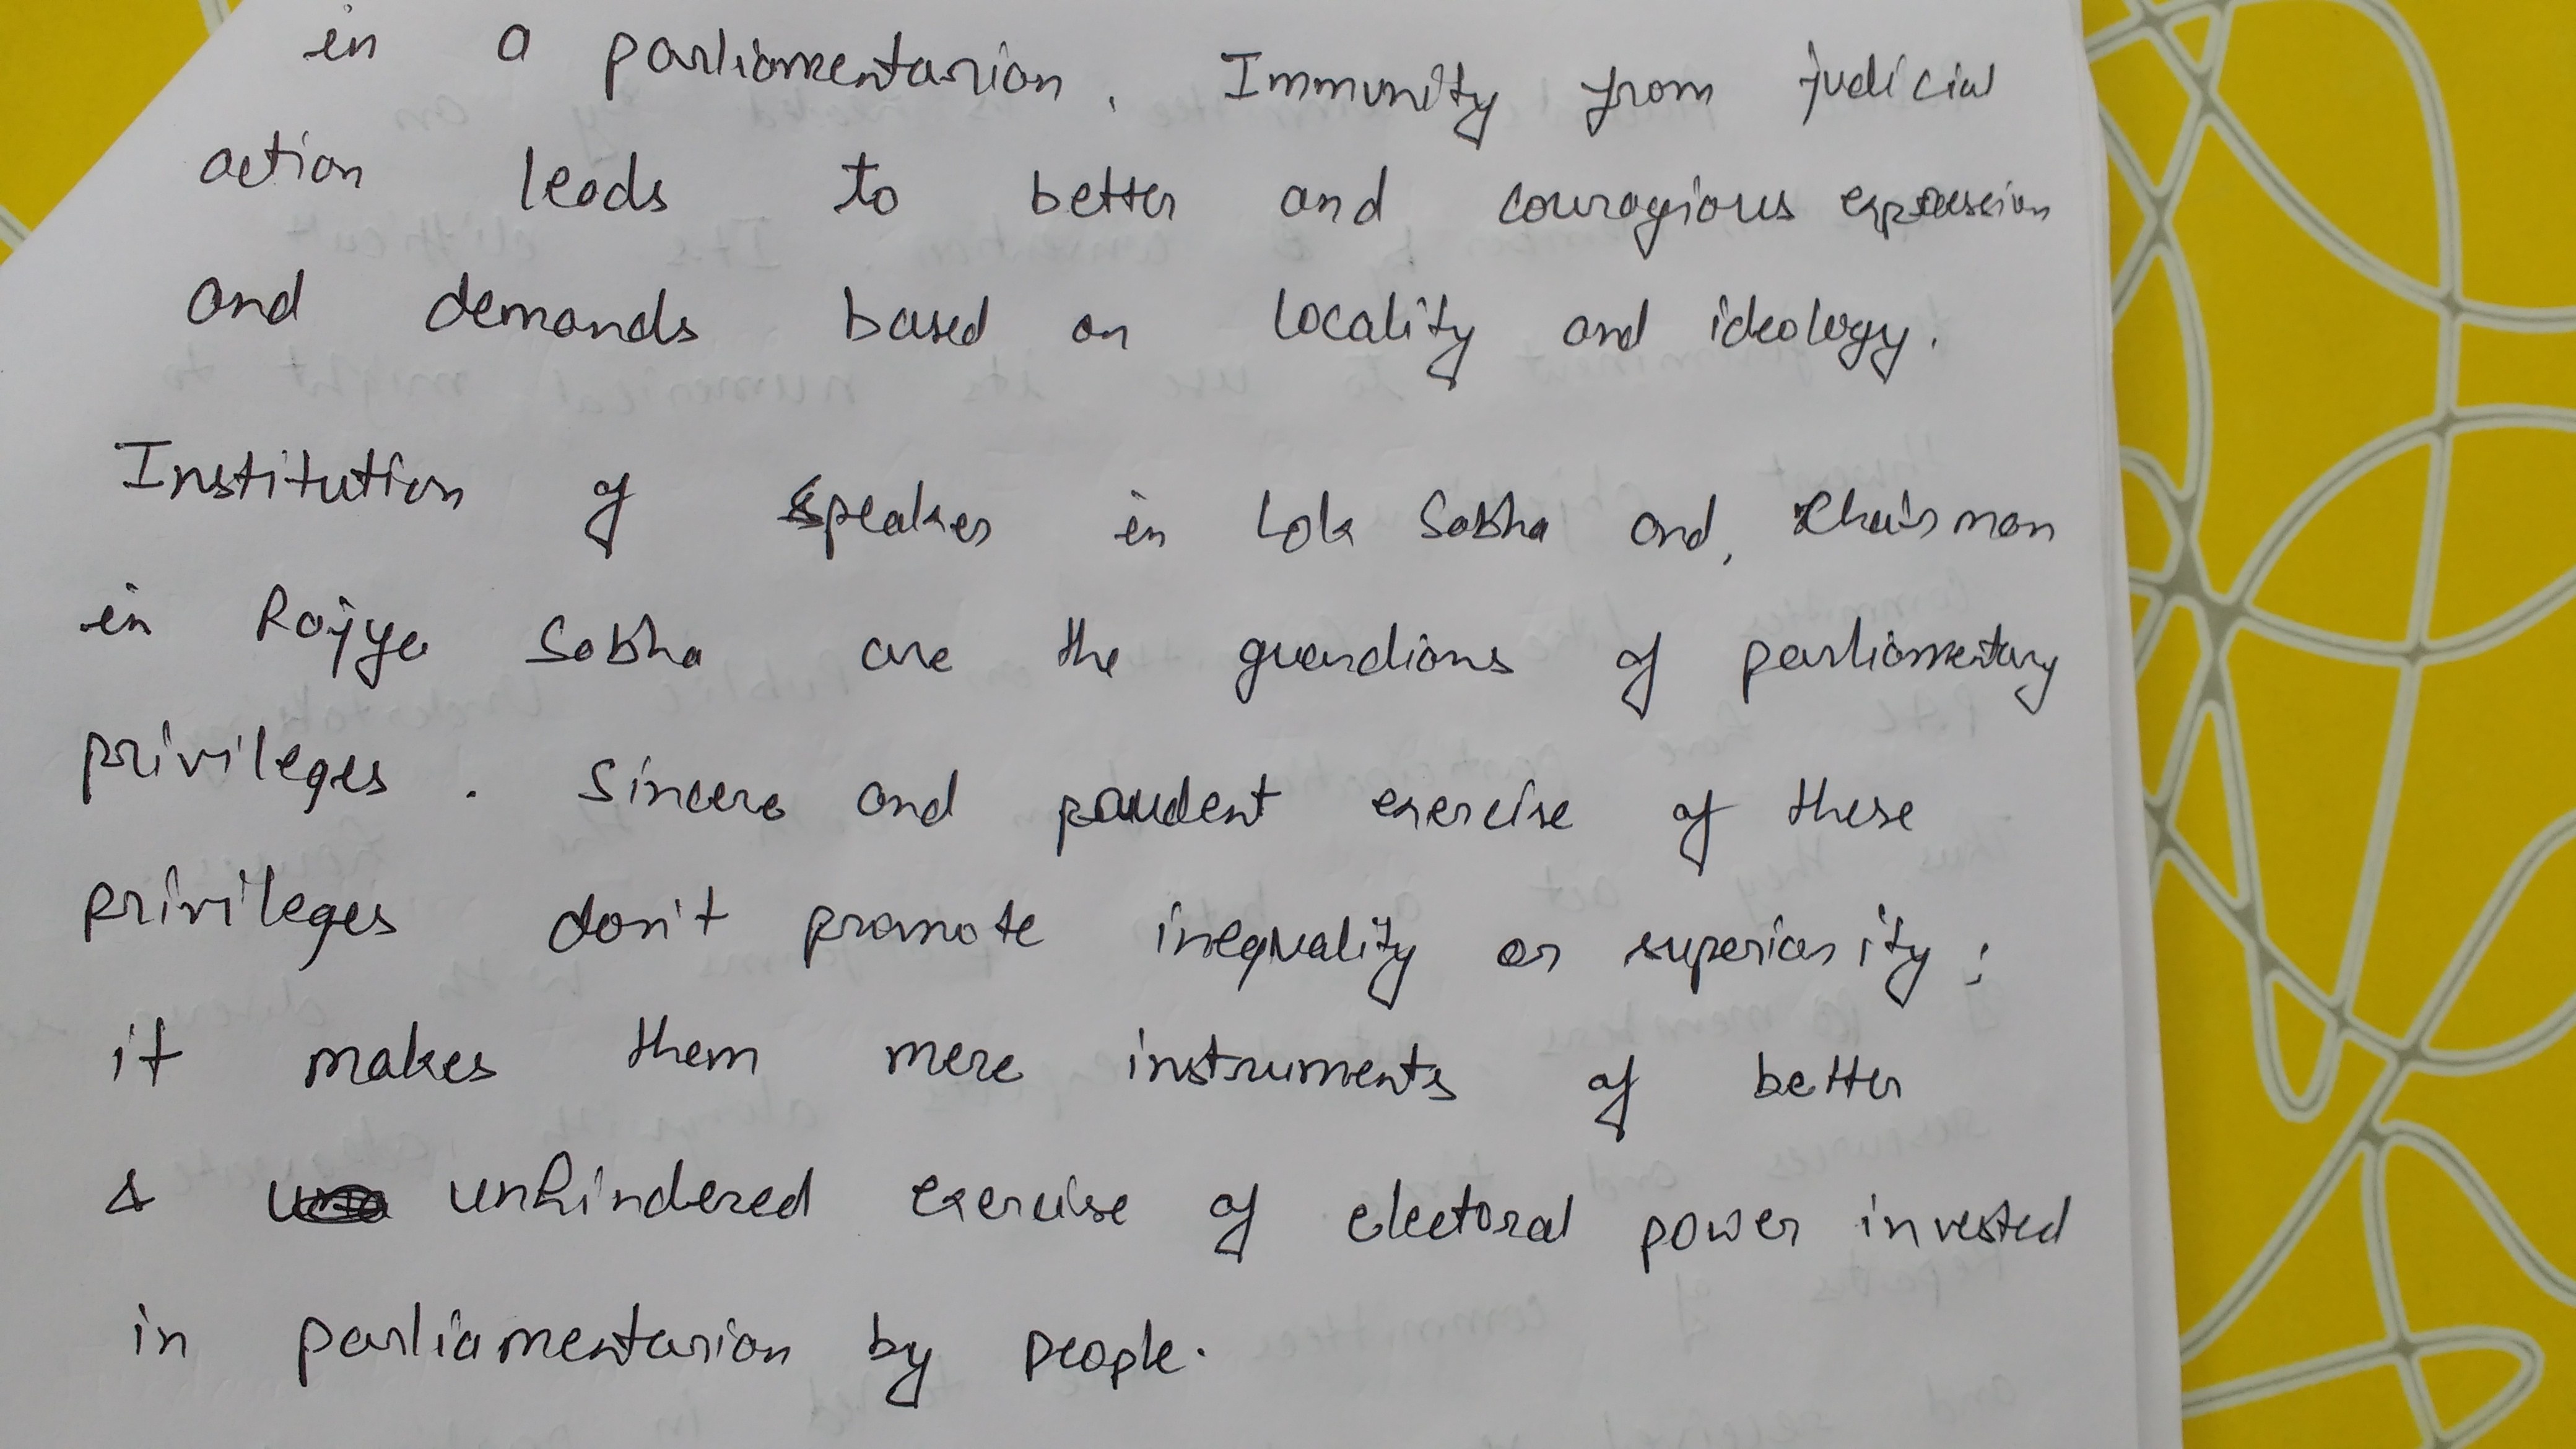 in a parliamentarian. Immunity from judicial
action leads to better and couragious expression
and demands based on locality and ideology.
Institution of speaker in Lok Sabha and, Chairman
in Rajya Sabha are the guardians of parliamentary
privileges. Sincere and prudent exercise of these
privileges don't promote inequality or superiority;
it makes them mere instruments of better
& unhindered exercise of electoral power invested
in parliamentarian by people.